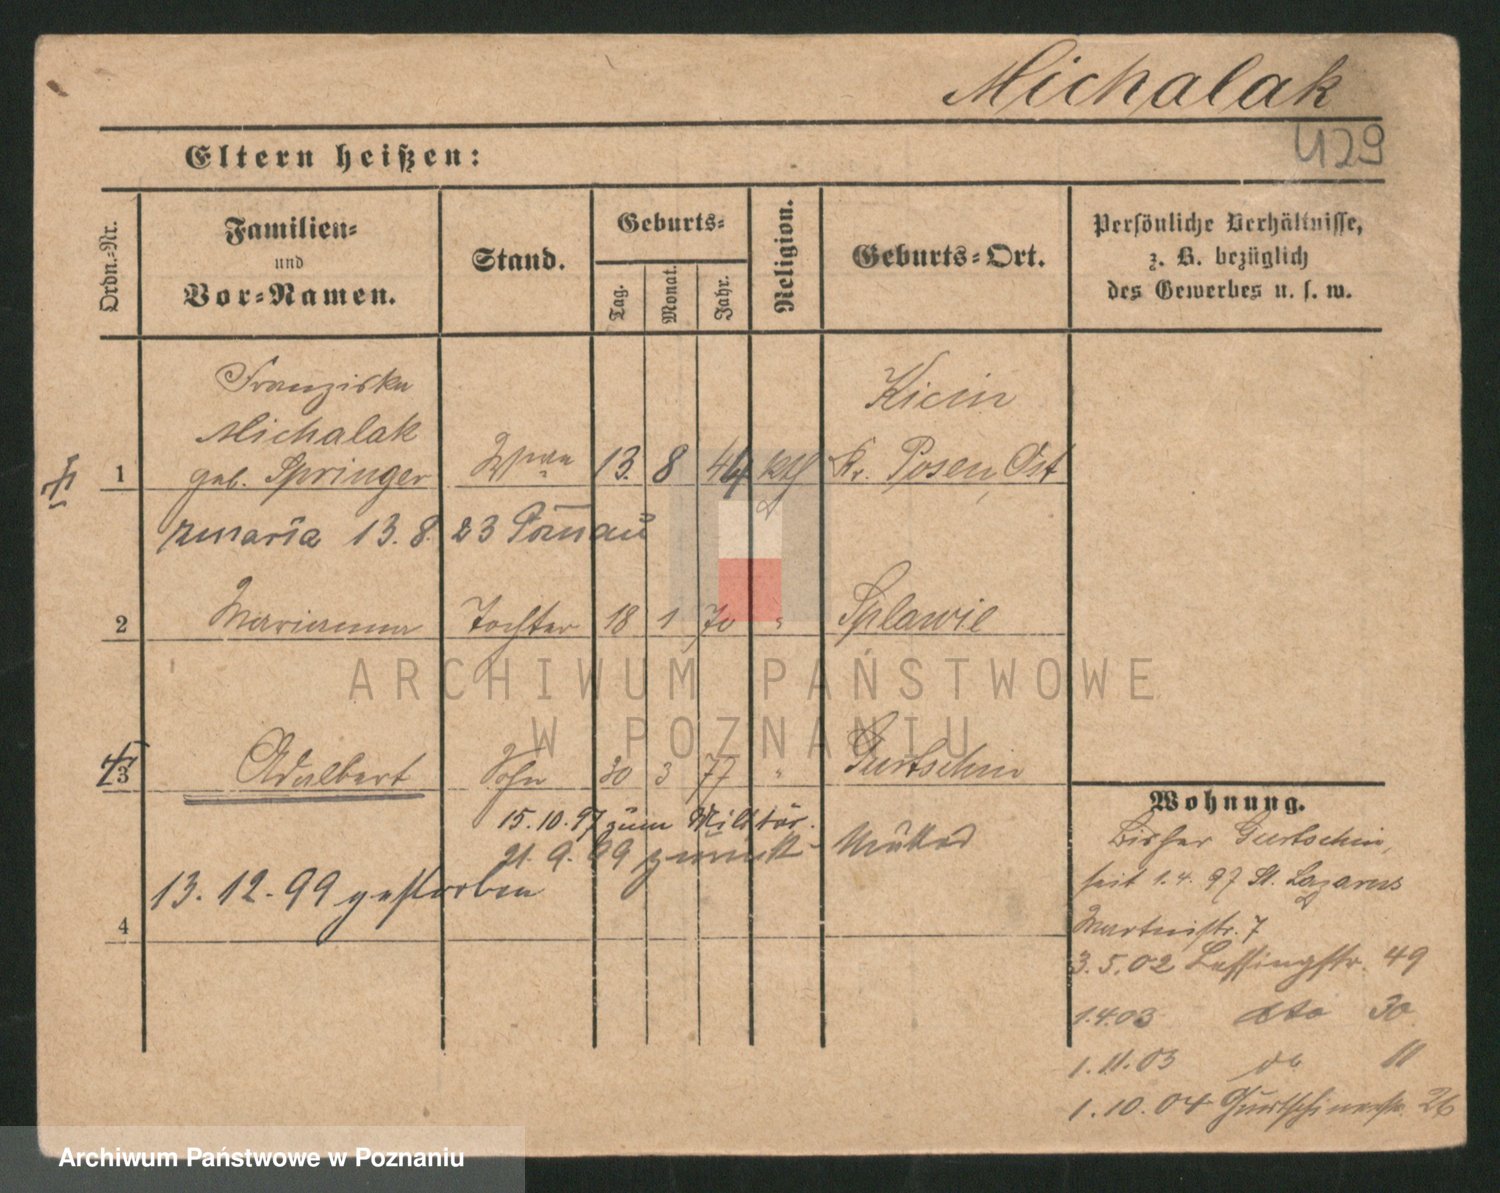 Michalak
429
Eltern heißen:
Ordn.-Nr.
Familien-
und
Vor-Namen.
Stand.
Geburts-
Tag.
Monat.
Jahr.
Religion.
Geburts-Ort.
Persönliche Verhältnisse,
z. B. bezüglich
des Gewerbes u. s. w.
Franziska
Michalak
geb. Springer
Kicin
1 Wwe 13. 8 44 kth Kr. Posen Ost
zmarła 13. 8. 23 Poznań
2 Marianna Tochter 18 1 70 " Splawie
ARCHIWUM PAŃSTWOWE
W POZNANIU
3 Adalbert Sohn 30 3 77 " Gurtschin
15.10.97 zum Militär.
21. 9. 99 zurück
13. 12. 99 gestorben
4
Wohnung.
Bisher Gurtschin,
seit 1.4.97 St. Lazarus
7
3.5.02 Lessingstr. 49
1.4.03 dto 30
1.11.03 do 11
1.10.04 Gurtschinerstr. 26
Archiwum Państwowe w Poznaniu